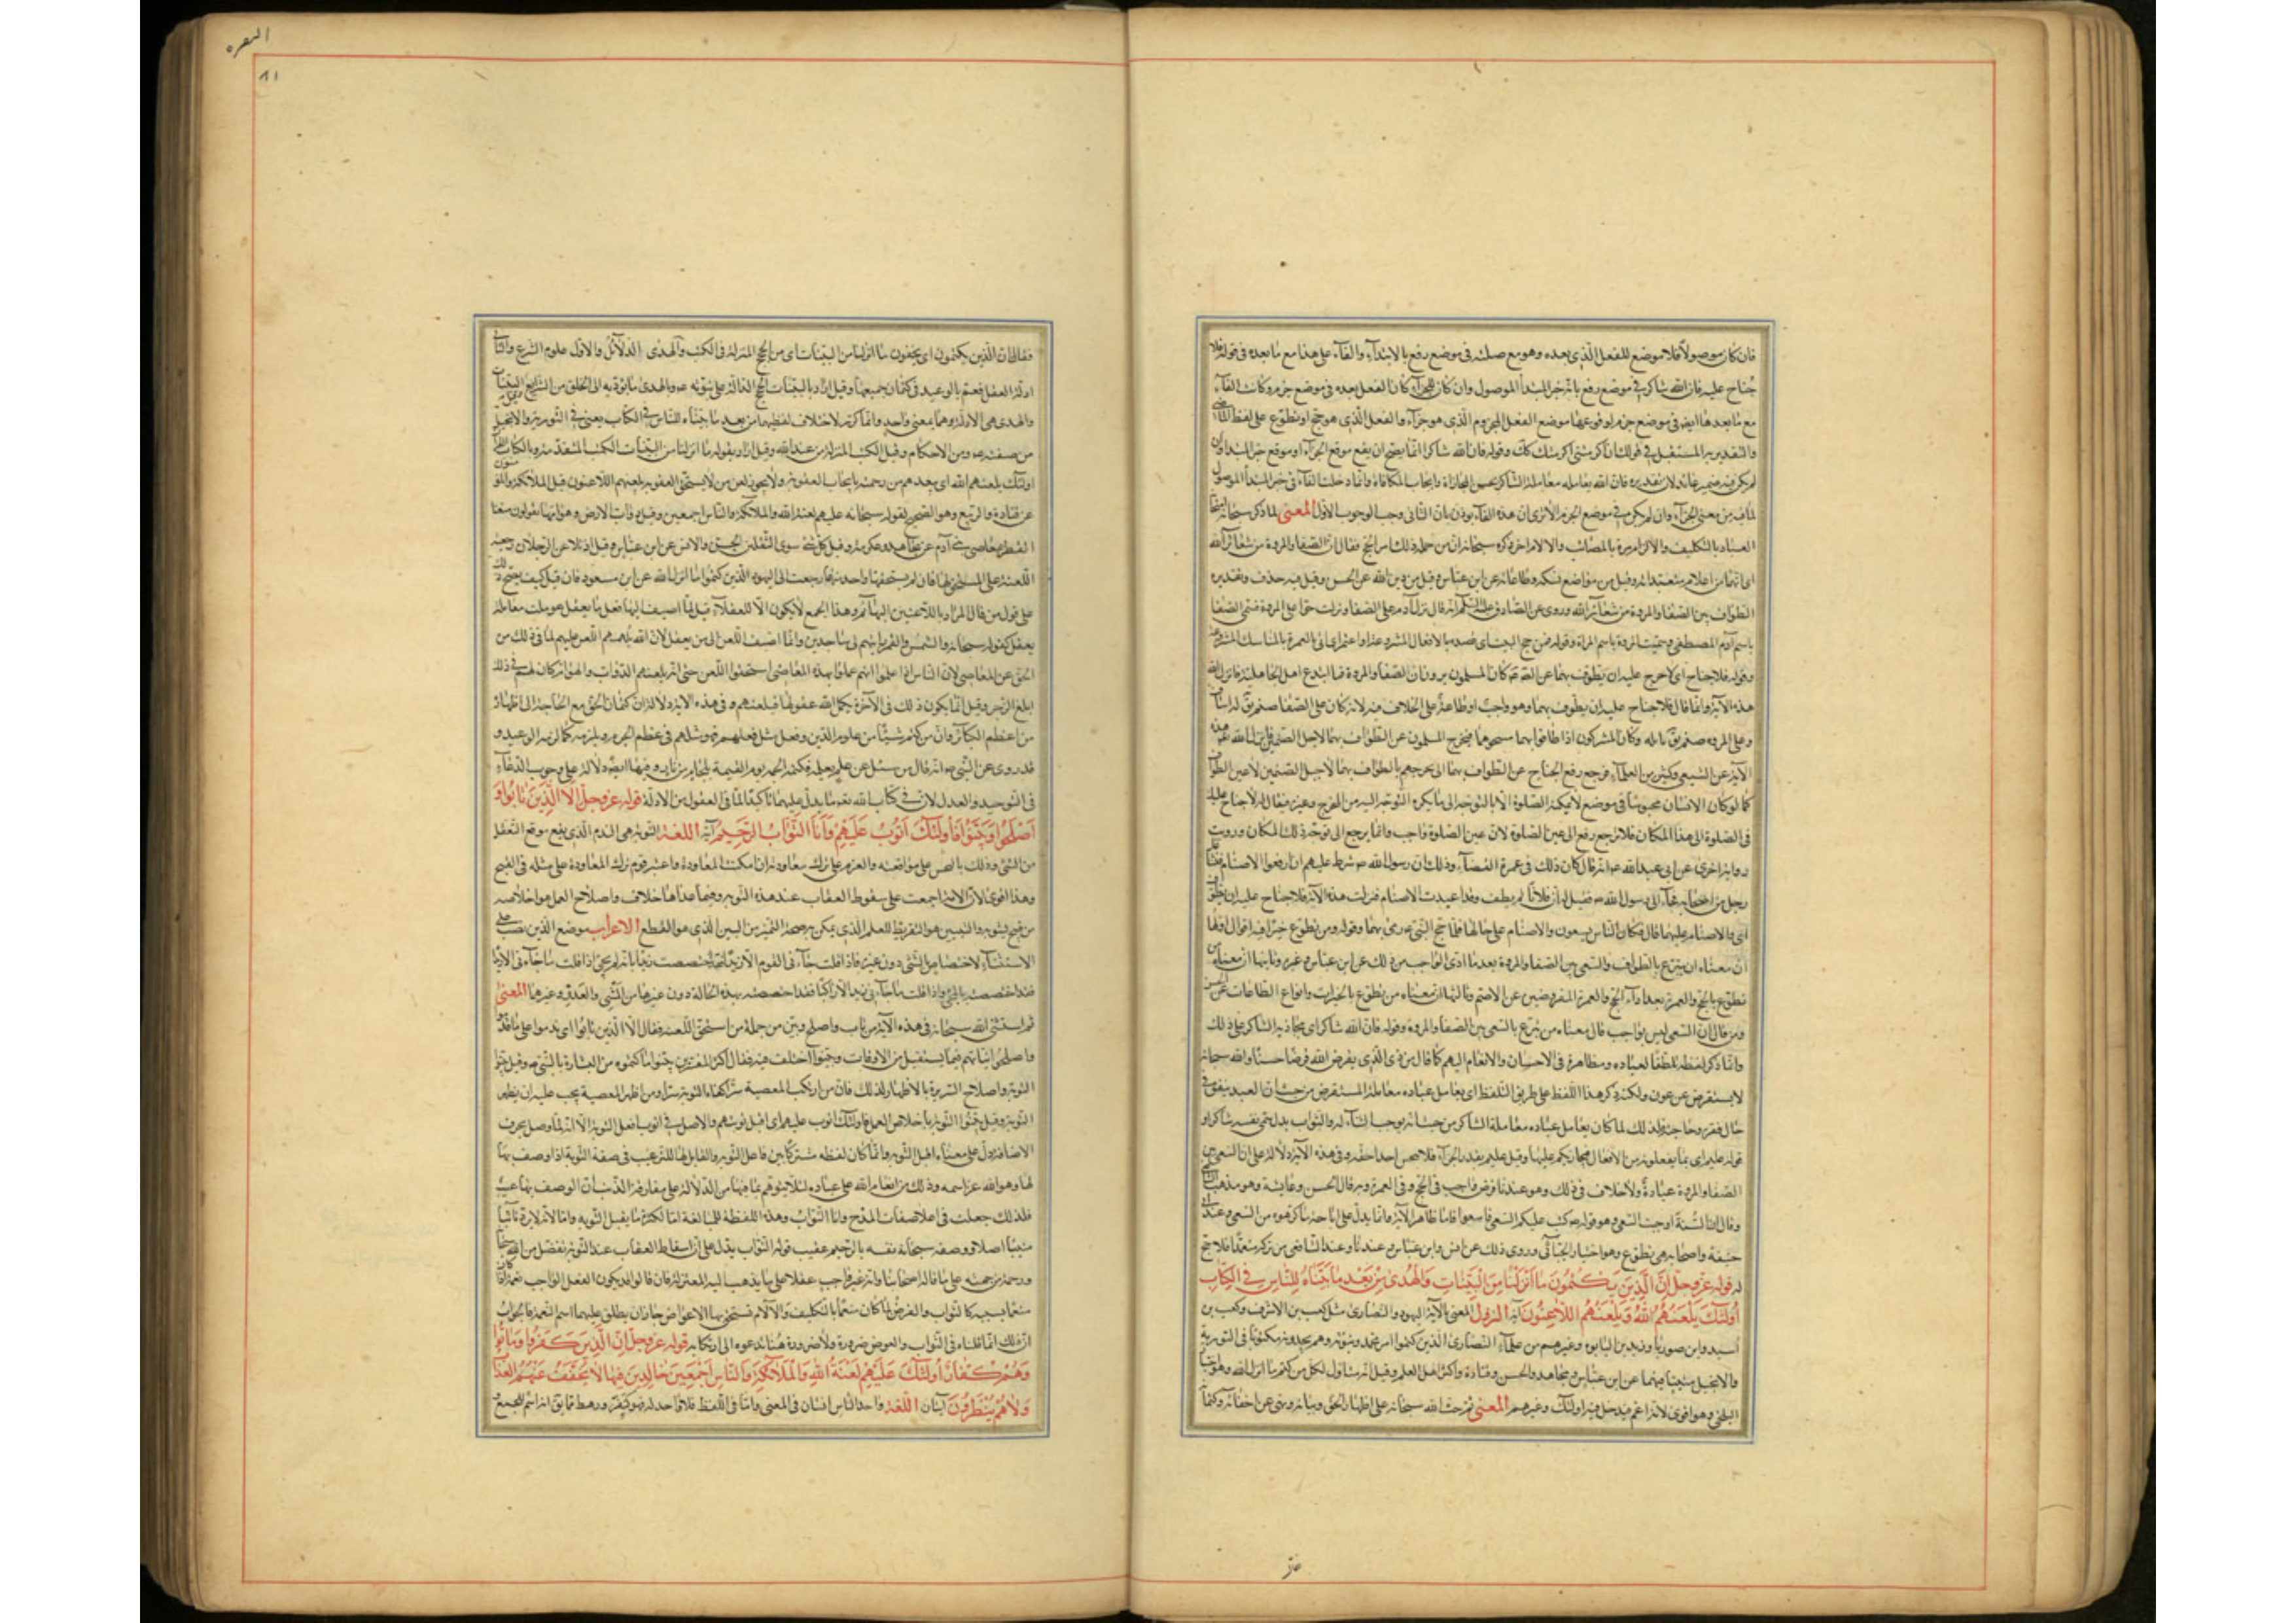 فان كان موصولا فلا موضع للفعل الذي بعده وهو مع صلته في موضع رفع بالابتداء والفاء على هذا مع ما بعده في قوله فلا
جناح عليه فان الله شاكر في موضع رفع بانه خبر المبتدأ الموصول وان كان للجزاء كان الفعل بعده في موضع جزم وكانت الفاء
مع ما بعدها ايضا في موضع جزم لوقوعها موضع الفعل المجزوم الذي هو جزاء والفعل الذي هو حج او تطوع على لفظ الماضي
والتقدير به المستقبل في قولك ان اكرمتني اكرمتك وقوله فان الله شاكر انما يصح ان يقع موقع الجزاء او موقع خبر المبتدا وان
لم يكن فيه ضمير عائد لان تقديره فان الله يعامله معاملة الشاكر بحسن المجازاة وايجاب المكافاة وانما دخلت الفاء في خبر المبتدأ الموصول
لما فيه من معنى الجزاء وان لم يكن في موضع الجزم الا ترى ان هذه الفاء يوذن بان الثاني وجب لوجوب الاول المعنى لما ذكر سبحانه امتحان
العباد بالتكليف والالزام مرة بالمصائب والالام اخرى ذكر سبحانه ان من جملة ذلك امر الحج فقال ان الصفا والمروة من شعائر الله
اي انهما من اعلام متعبداته وقيل من مواضع نسكه وطاعاته عن ابن عباس وقيل من دين الله عن الحسن وقيل فيه حذف وتقديره
الطواف بين الصفا والمروة من شعائر الله وروى عن الصادق عليه السلم انه قال نزل آدم على الصفا ونزلت حوا على المروة فسمى الصفا
باسم آدم المصطفى وسميت المروة باسم المراة وقوله فمن حج البيت اي قصده بالافعال المشروعة او اعتمر اي اتى بالعمرة بالمناسك المشروعة
وقوله فلا جناح اي لا حرج عليه ان يطوف بهما عن الصادق كان المسلمون يرون ان الصفا والمروة مما ابتدع اهل الجاهلية فانزل الله
هذه الآية وانما قال فلا جناح عليه ان يطوف بهما وهو واجب او طاعة على الخلاف فيه لانه كان على الصفا صنم يق له اساف
وعلى المروة صنم يق نائله وكان المشركون اذا طافوا بهما مسحوهما فتحرج المسلمون عن الطواف بهما لاجل الصنمين فانزل الله هذه
الآية عن الشعبي وكثير من العلماء فرجع رفع الجناح عن الطواف بهما الى تحرجهم بالطواف بهما لاجل الصنمين لا عين الطواف
كما لو كان الانسان محبوسا في موضع لا يمكنه الصلوة الا بالتوجه الى ما يكره التوجه اليه من المخرج وغيره فيقال له لا جناح عليك
في الصلوة الى هذا المكان فلا يرجع رفع الى عين الصلوة لان عين الصلوة واجب وانما يرجع الى توجه ذلك المكان ورويت
رواية اخرى عن ابى عبد الله انه قال كان ذلك في عمرة القضاء وذلك ان رسول الله شرط عليهم ان يرفعوا الاصنام
رجل من اصحابه فجاء الى رسول الله فقيل له ان فلانا لم يطف وقد اعيدت الاصنام فنزلت هذه الآية فلا جناح عليه ان يطوف
اي والاصنام عليهما قال فكان الناس يسعون والاصنام على حالها فلما حج النبي رمى بها وقوله ومن تطوع خيرا فيه اقوال اولها
ان معناه من تبرع بالطواف والسعي بين الصفا والمروة بعد ما ادى الواجب من ذلك عن ابن عباس وغيره وثانيها ان معناه من
تطوع بالحج والعمرة بعد اداء الحج والعمرة المفروضين عن الاصم وثالثها ان معناه من تطوع بالخيرات وانواع الطاعات عن الحسن
ومن قال ان السعي ليس بواجب قال معناه من تبرع بالسعي بين الصفا والمروة وقوله فان الله شاكر اي مجازيه الشاكر على ذلك
وانما ذكر لفظه تلطفا لعباده ومظاهرة في الاحسان والانعام اليهم كما قال من ذى الذي يقرض الله قرضا حسنا والله سبحانه
لا يستقرض عن عوز ولكنه ذكر هذا اللفظ على طريق التلطف اي يعامل عباده معاملة المستقرض من حيث ان العبد ينفق في
حال فقره وحاجته فلذلك لما كان يعامل عباده معاملة الشاكر من حيث انه يوجب الثناء له والثواب بدل سمى نفسه شاكرا و
قوله عليم اي بما يفعلونه من الافعال فيجازيكم عليها وقيل عليم بقدر الجزاء فلا يبخس احدا حقه وفى هذه الآية دلالة على ان السعي بين
الصفا والمروة عبادة ولا خلاف في ذلك وهو عندنا فرض واجب في الحج وفى العمرة وبه قال الحسن وعايشة وهو مذهب الشافعي
وقال ان السنة اوجبت السعي وهو قوله كتب عليكم السعي فاسعوا فاما ظاهر الآية فانما يدل على اباحة ما كرهوه من السعي وعند ابى
حنيفة واصحابه هو تطوع وهو اختيار الجبائي وروى ذلك عن انس وابن عباس وعندنا وعند الشافعي من تركه متعمدا فلا حج
له قوله عز وجل ان الذين يكتمون ما انزلنا من البينات والهدى من بعد ما بيناه للناس في الكتاب
اولئك يلعنهم الله ويلعنهم اللاعنون آية النزول المعنى بالآية اليهود والنصارى مثل كعب بن الاشرف وكعب بن
اسيد وابن صوريا وزيد بن التابوه وغيرهم من علماء النصارى الذين كتموا امر محمد ونبوته وهم يجدونه مكتوبا في التورية
والانجيل مثبتا فيهما عن ابن عباس ومجاهد والحسن وقتادة واكثر اهل العلم وقيل انه متناول لكل من كتم ما انزل الله وهو اختيار
البلخي وهو اقوى لانه اعم فيدخل فيه اولئك وغيرهم المعنى ثم حث الله سبحانه على اظهار الحق وبيانه ونهى عن اخفائه وكتمانه
البقره
٨١
فقال ان الذين يكتمون اي يخفون ما انزلنا من البينات اي من الحجج المنزلة في الكتب والهدى الدلائل والاول علوم الشرع والثاني
ادلة العقل فعم بالوعيد في كتمان جميعها وقيل اراد بالبينات الحجج الدالة على نبوته والهدى ما يؤديه الى الخلق من الشرايع وقيل البينات
والهدى هي الادلة وهما بمعنى واحد وانما كرر لاختلاف لفظيهما من بعد ما بيناه للناس في الكتاب يعني في التورية والانجيل
من صفته ومن الاحكام وقيل الكتب المنزلة من عند الله وقيل اراد بقوله ما انزلنا من البينات الكتب المتقدمة وبالكتاب القرآن
اولئك يلعنهم الله اي يبعدهم من رحمته بايجاب العقوبة ولا يجوز لعن من لا يستحق العقوبة ويلعنهم اللاعنون قيل الملائكة والمؤمنون
عن قتادة والربيع وهو الصحيح لقوله سبحانه عليهم لعنة الله والملائكة والناس اجمعين وقيل دواب الارض وهوامها يقولون منعنا
القطر بمعاصى بني آدم عن مجاهد وعكرمة وقيل كل شئ سوى الثقلين الجن والانس عن ابن عباس وقيل اذا تلاعن الرجلان رجعت
اللعنة على المستحق لها فان لم يستحقها واحد منهما رجعت الى اليهود الذين كتموا ما انزل الله عن ابن مسعود فان قيل كيف يصح ذلك
على قول من قال المراد باللاعنين البهائم وهذا الجمع لا يكون الا للعقلاء قيل لما اضيف اليها فعل ما يعقل عوملت معاملة
يعقل كقوله سبحانه والشمس والقمر رايتهم لى ساجدين وانما اضيف اللعن الى من يعقل لان الله يلهمهم اللعن عليهم لما في ذلك من
الحق عن المعاصى لان الناس اذا علموا انهم عملوا بهذه المعاصى استحقوا اللعن حتى انه يلعنهم الدواب والهوام كان لهم في ذلك
ابلغ الزجر وقيل انما يكون ذلك في الآخرة يكمل الله عقولها فيلعنهم وفي هذه الآية دلالة ان كتمان الحق مع الحاجة الى اظهاره
من اعظم الكبائر وان من كتم شيئا من علوم الدين وفعل مثل فعلهم فهو مثلهم في عظم الجرم ويلزمه كما لزمهم الوعيد و
قد روى عن النبي انه قال من سئل عن علم يعلمه فكتمه الجم يوم القيمة بلجام من نار وفيها ايضا دلالة على وجوب الدعاء
في التوحيد والعدل لان في كتاب الله ما يدل عليهما تاكيدا لما في العقول من الادلة قوله عز وجل الا الذين تابوا و
اصلحوا وبينوا فاولئك اتوب عليهم وانا التواب الرحيم آية اللغة التوبة هي الندم الذي يقع موقع التنصل
من الشئ وذلك بالتحسر على مواقعته والعزم على ترك معاودته ان امكنت المعاودة واعتبر قوم ترك المعاودة على مثله في القبح
وهذا اقوى لان الامة اجمعت على سقوط العقاب عند هذه التوبة وفيما عداها خلاف واصلاح العمل هو اخلاصه
من قبح يشوبه والتبيين هو التعريض للعلم الذي يمكن به صحة التميز من البين الذي هو القطع الاعراب موضع الذين نصب على
الاستثناء
فقد اختصصته بالمجئ واذا قلت ما جاءني زيد الا راكبا فقد اختصصته بهذه الحالة دون غيرها من المشي والعدو وغيرهما المعنى
ثم استثنى الله سبحانه في هذه الآية من تاب واصلح وبين من جملة من استحق اللعنة فقال الا الذين تابوا اي ندموا على ما قدموا
واصلحوا نياتهم فيما يستقبل من الاوقات وبينوا اختلف فيه فقال اكثر المفسرين بينوا ما كتموه من البشارة بالنبي وقيل بينوا
التوبة واصلاح السريرة بالاظهار لذلك فان من ارتكب المعصية سرا كفاه التوبة سرا ومن اظهر المعصية يجب عليه ان يظهر
التوبة وقيل بينوا التوبة باخلاص العمل فاولئك اتوب عليهم اي اقبل توبتهم والاصل في اتوب افعل التوبة الا انه لما وصل بحرف
الاضافة دل على ان معناه اقبل التوبة وانما كان لفظه مشتركا بين فاعل التوبة والقابل لها للترغيب في صفة التوبة اذ وصف بها
لها وهو الله عز اسمه وذلك من انعام الله على عباده لئلا يتوهم بما فيها من الدلالة على مقارفة الذنب ان الوصف بها عيب
فلذلك جعلت في اعلا صفات المدح وانا التواب وهذه اللفظة للمبالغة اما لكثرة ما يقبل التوبة واما لانه لا يرد تائبا
منيبا اصلا ووصفه سبحانه نفسه بالرحيم عقيب قوله التواب يدل على ان اسقاط العقاب عند التوبة تفضل من الله سبحانه
ورحمة من جهته على ما قاله اصحابنا وانه غير واجب عقلا على ما يذهب اليه المعتزلة فان قالوا قد يكون الفعل الواجب نعمة اذا كان
منعما بسببه كالثواب والعوض لما كان منعما بالتكليف والآلام تستحق بها الاعواض جاز ان يطلق عليهما اسم النعمة فالجواب
ان ذلك انما قلناه في الثواب والعوض ضرورة ولا ضرورة هنا تدعوه الى ارتكابه قوله عز وجل ان الذين كفروا وماتوا
وهم كفار اولئك عليهم لعنة الله والملائكة والناس اجمعين خالدين فيها لا يخفف عنهم العذاب
ولا هم ينظرون آيتان اللغة واحد الناس انسان في المعنى واما في اللفظ فلا واحد له فهو كنفر ورهط مما يق انه اسم للجمع